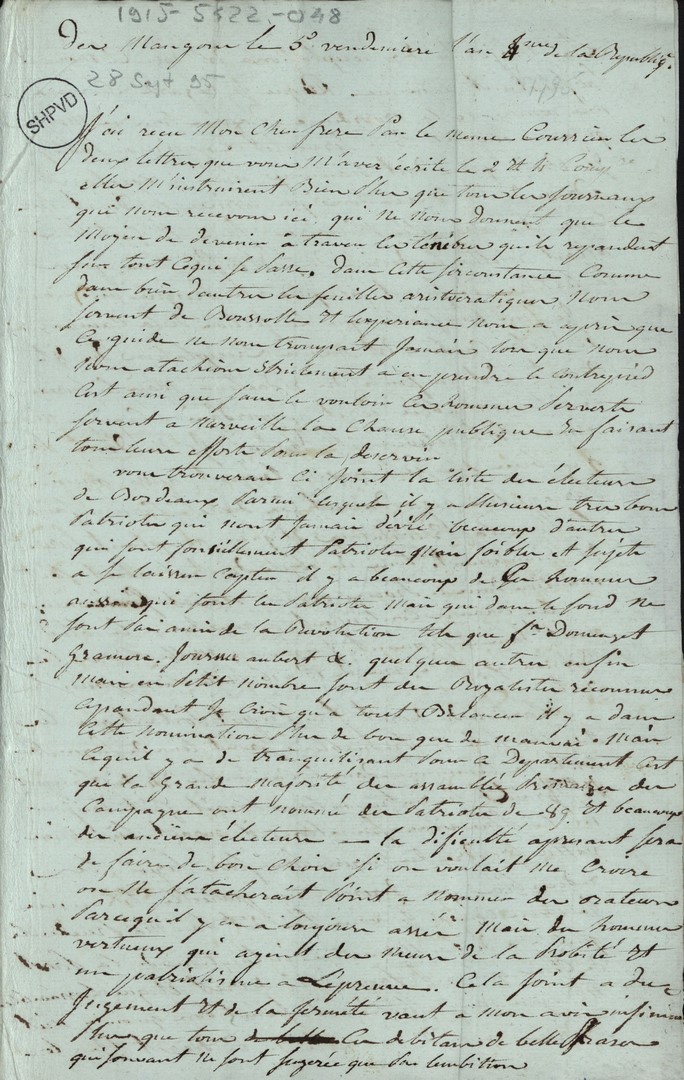 1915-5422-048
Des Mangons le 5e vendemiere l'an 4me de la Republiqe.
28 Sept 95
1795
SHPVD
J'ai recu Mon cher frere Par le meme Courrier les
deux lettres que vous m'avez écrite le 2 et 4 Comp.re
elles M'instruirent Bien Plus que tous les Journaux
qui nous recevons ici qui ne nous donnent que le
Moyen de deviner à travers les ténébres qu'ils repandent
sur tout Cequi se Passe. dans Cette sirconstance Comme
dans bien d'autres les feuilles aristocratiques nous
servent de Boussolle et l'experiance nous a apris que
Ce guide ne nous trompait Jamais lors que nous
Nous atachions strictement a en prendre le contrepied
C'est ainsi que sans le vouloir les hommes Perverts
servent a merveille la Chause publique en faisant
tous leurs efforts Pour la deservir
vous trouverais Ci Joint la liste des électeurs
de Bordeaux Parmi lesquels il y a Plusieurs tres bons
Patriotes qui n'ont Jamais dévié beaucoup d'autres
qui sont foncièllement Patriotes mais foibles et sujets
a se laisser Capter il y a beaucoup de Ces hommes
aussi qui font les Patriotes mais qui dans le fond ne
sont Pas amis de la Revolution tels que Domenget
Gramon. Journu aubert &. quelques autres enfin
mais en Petit nombre sont des Royalistes réconnus
Cepandant Je Crois qu'a tout Balancer il y a dans
Cette nomination Plus de bon que de mauvais. Mais
Cequil y a de tranquilisant Pour Ce Departement C'est
que la Grande majorité des assemblées Primaires des
Campagnes ont nommé des Patriotes de 89 et beaucoup
des anciens électeurs — la dificulté apresant sera
de faire de bon choix si on voulait me Croire
on ne s'atacherait Point a nommer des orateurs
Parcequil y en a toujours assés mais des hommes
vertueux qui ayent des mœurs de la Probité et
un patriotisme a L'épreuve. Cela Joint a du
Jugement et de la fermété vaut a mon avis infiniment
Plus que tous de belle Ces debitans de belles frases
qui souvant ne sont sugerée que Par l'ambition